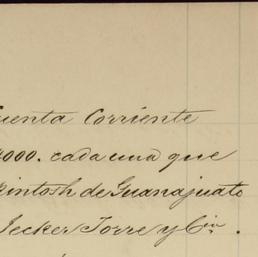 uenta Corriente
4000. cada una que
kintosh de Guanajuato
Jecker Torre y Cia.